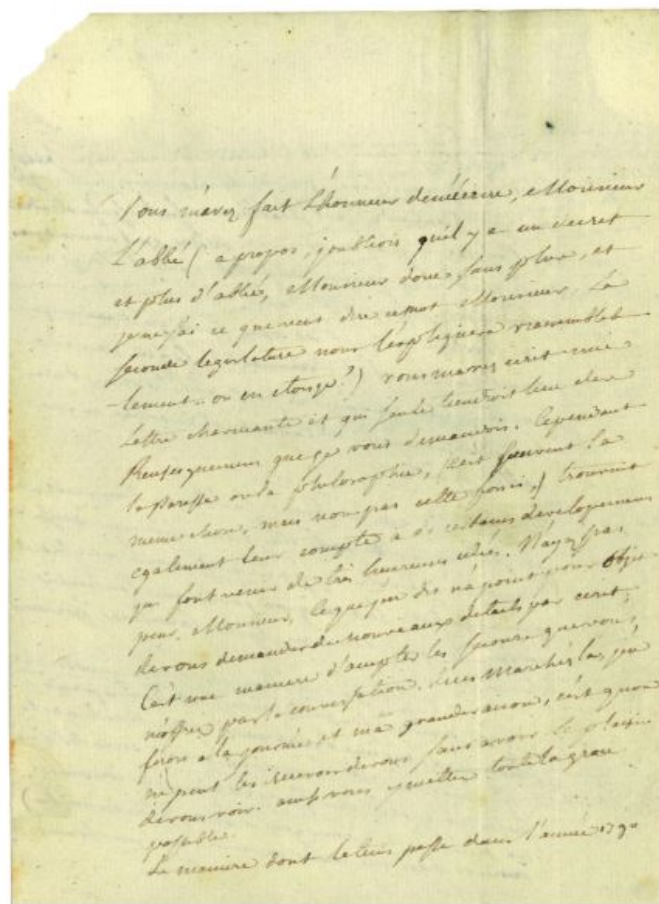 Vous m'avez fait L'honneur de m'écrire, Monsieur
L'abbé (a propos, j'oubliois qu'il y a un decret
et plus d'abbé, Monsieur donc, sans plus, et
je ne sai ce que veut dire ce mot Monsieur. La
seconde legislature nous l'expliquera vraisembla
-lement.. ou en
?) vous m'avez ecrit une
Lettre charmante et qui seule tiendroit lieu des
Renseignemens que je vous demandois. Cependant
la Paresse ou la philosophie, (c'est souvent la
meme chose, mais non pas celle ) trouvent
egalement leur compte a de certains developemens
qui font venir de très heureuses idées. N'ayez pas
peur, Monsieur, ce que j'en dis n'a point pour objet
de vous demander de nouveaux details par ecrit;
C'est une maniere d'accepter les secours que vous
m'offrez par la conversation. ces Marchés la, j'en
ferois a la journée et ma grande raison, c'est qu'on
ne peut les recevoir de vous sans avoir le plaisir
de vous voir. vous toute la grace
possible.
La maniere dont le tems passe dans l'année 1790